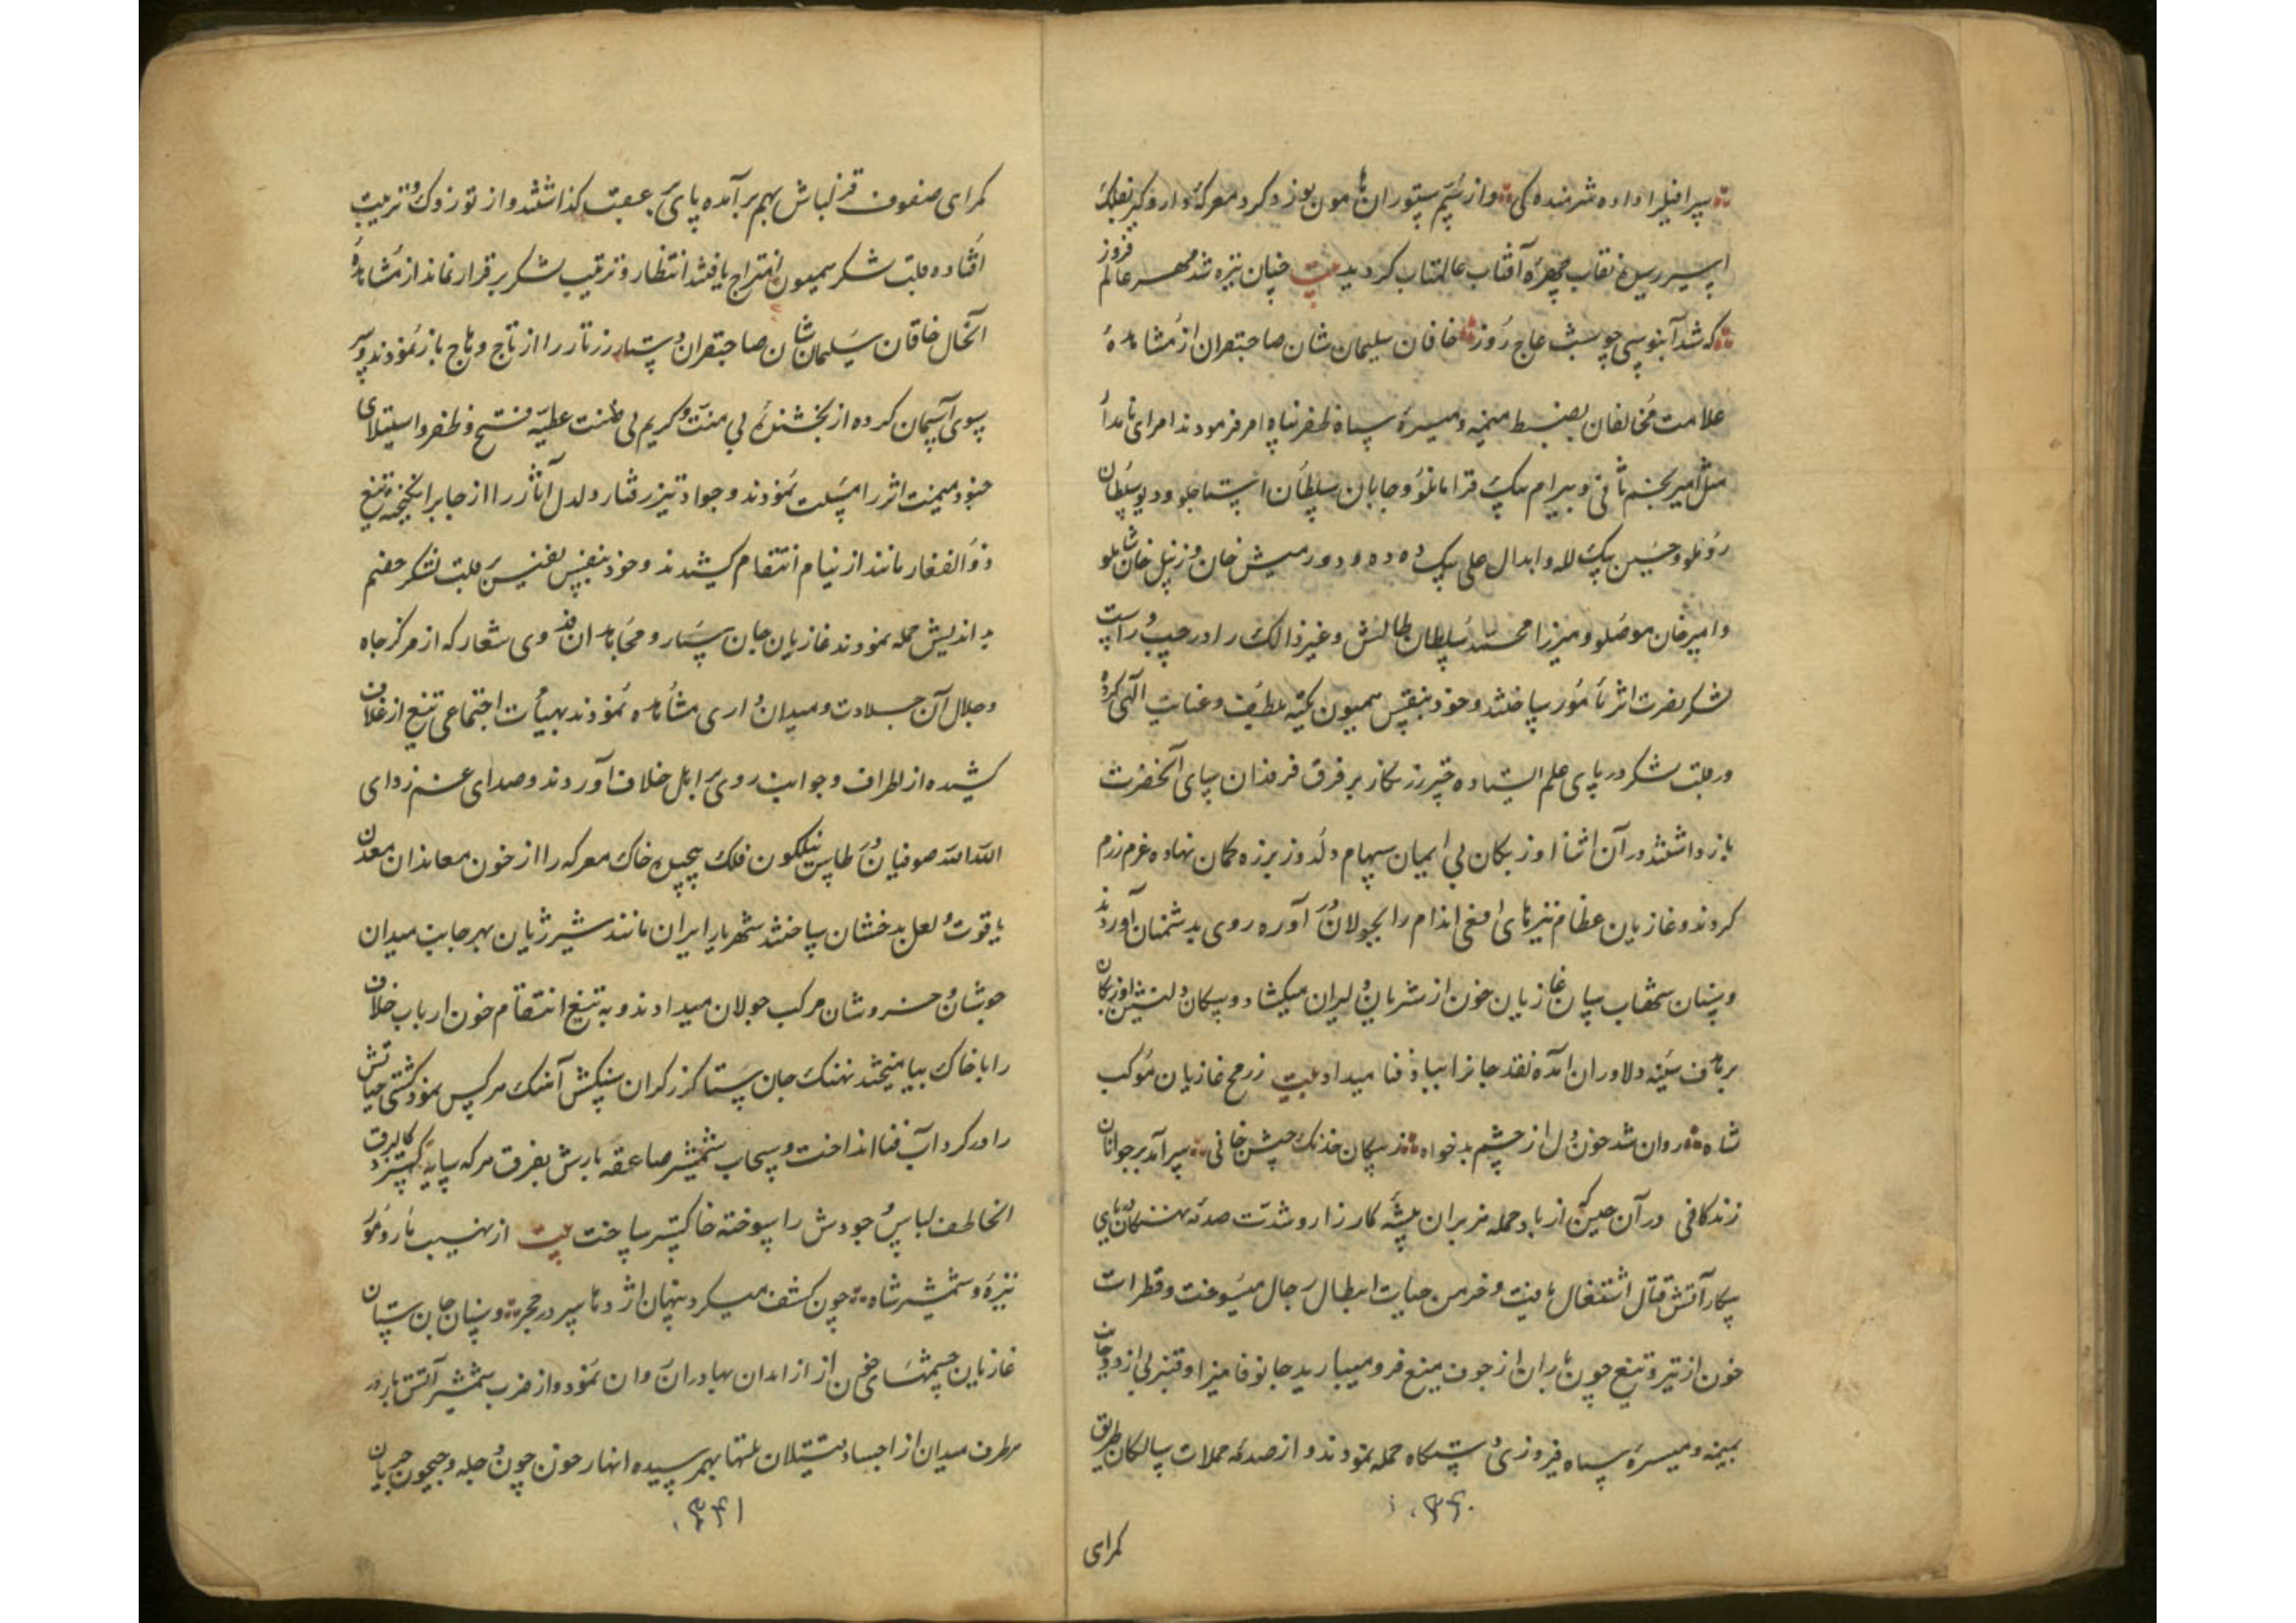 سرافیل را داده شرمنده کی وار سم ستوران هامون نورد کرد معرکه دار و کیر بفلک
اسیر رسیده نقاب چهره آفتاب عالمتاب کردید بیت چنان تیره شد مهر عالم فروز
که شد آبنوسی چو شب عاج روز خاقان سلیمان شان صاحبقران از مشاهدهٔ
علامت مخالفان بضبط میمنه و میسرهٔ سپاه ظفر پناه امر فرمودند امرای نامدار
مثل امیر نجم ثانی و بیرام بیک قرامانلو و جایان سلطان استاجلو و دیو سلطان
روملو و حسین بیک لله و ابدال علی بیک دده و دورمیش خان و زینل خان شاملو
و امیر خان موصلو و میرزا محمد سلطان طالش و غیر ذالک را در چپ و راست
لشکر نصرت اثر مامور ساختند و خود بنفس همیون تکیه بلطف و عنایت الهی کرده
در قلب لشکر در پای علم ایستاده چتر زرنکار بر فرق فرقدان سای آنحضرت
بازداشتند در آن اثنا اوزبکان بی ایمان سهام دلدوز بر زه کمان نهاده عزم رزم
کردند و غازیان عظام نیزهای افعی اندام را بجولان در آورده روی بدشمنان آوردند
و سنان سرغازیان خون از شریان دلیران میکشاد و پیکان دلنشین اوزبکان
بر هدف سینه دلاوران آمده نقد جانرا بباد فنا میداد بیت ز رمح غازیان موکب
شاه روان شد خون دل از چشم بدخواه ز پیکان خدنک جیش خانی سر آمد بر جوانان
زندکانی در آن حین که از باد حمله هزبران بیشهٔ کارزار و شدت صدمه نهنکان دریای
پیکار آتش قتال اشتغال یافت و خرمن حیات ابطال رجال میسوخت و قطرات
خون از تیر و تیغ چون باران از جوف میغ فرو میبارید جانوفا میرزا و قنبر بی از دو جانب
بمیمنه و میسرهٔ سپاه فیروزی دستکاه حمله نمودند و از صدمه حملات سالکان طریق
۰۳۴۰
کمرای
کمرای صفوف قزلباش بهم برآمده پای بعقب کذاشتند و از توزوک و ترتیب
افتاده بقلب لشکر همیون امتزاج یافتند انتظار و ترتیب لشکر برقرار نماند از مشاهدهٔ
آنحال خاقان سلیمان شان صاحبقران دستار زرتار را از تاج وهاج باز نمودند و سر
بسوی آسمان کرده از بخشندهٔ بی منت و کریم بی ضنت عطیه فتح و ظفر و استیلای
جنود میمنت اثر را مسئلت نمودند و جواد تیز رفتار دلدل آثار را از جا برانکیخته تیغ
ذوالفقار مانند از نیام انتقام کشیدند و خود بنفس نفیس بقلب لشکر خصم
بد اندیش حمله نمودند غازیان جان سپار و مجاهدان فدوی شعار که از مرکز جاه
و جلال آن جلادت و میدان داری مشاهده نمودند بهیأت اجتماعی تیغ از غلاف
کشیده از اطراف و جوانب روی بر اهل خلاف آوردند و صدای غم زدای
الله الله صوفیان در طاس نیلکون فلک پیچیده خاک معرکه را از خون معاندان معدن
یاقوت و لعل بدخشان ساختند شهریار ایران مانند شیر ژیان بهر جانب میدان
جوشان و خروشان مرکب جولان میدادند و به تیغ انتقام خون ارباب خلاف
را با خاک بیامیختند نهنک جان ستا کرز کران سنکش آهنک هر کس نمود کشتی حیاتش
را در کرداب فنا انداخت و سحاب شمشیر صاعقه بارش بفرق هر که سایه کسترد کالبرق
الخاطف لباس وجودش را سوخته خاکستر ساخت بیت از نهیب مار و مور
نیزه و شمشیر شاه چون کشف میکرد پنهان اژدها سر در حجر و سنان جان ستان
غازیان چشمهای خون از ابدان بهادران روان نمود و از ضرب شمشیر آتش بار در
هر طرف میدان از اجساد قتیلان تلها بهم رسیده انهار خون چون دجله و جیحون جریان
۰۳۴۱